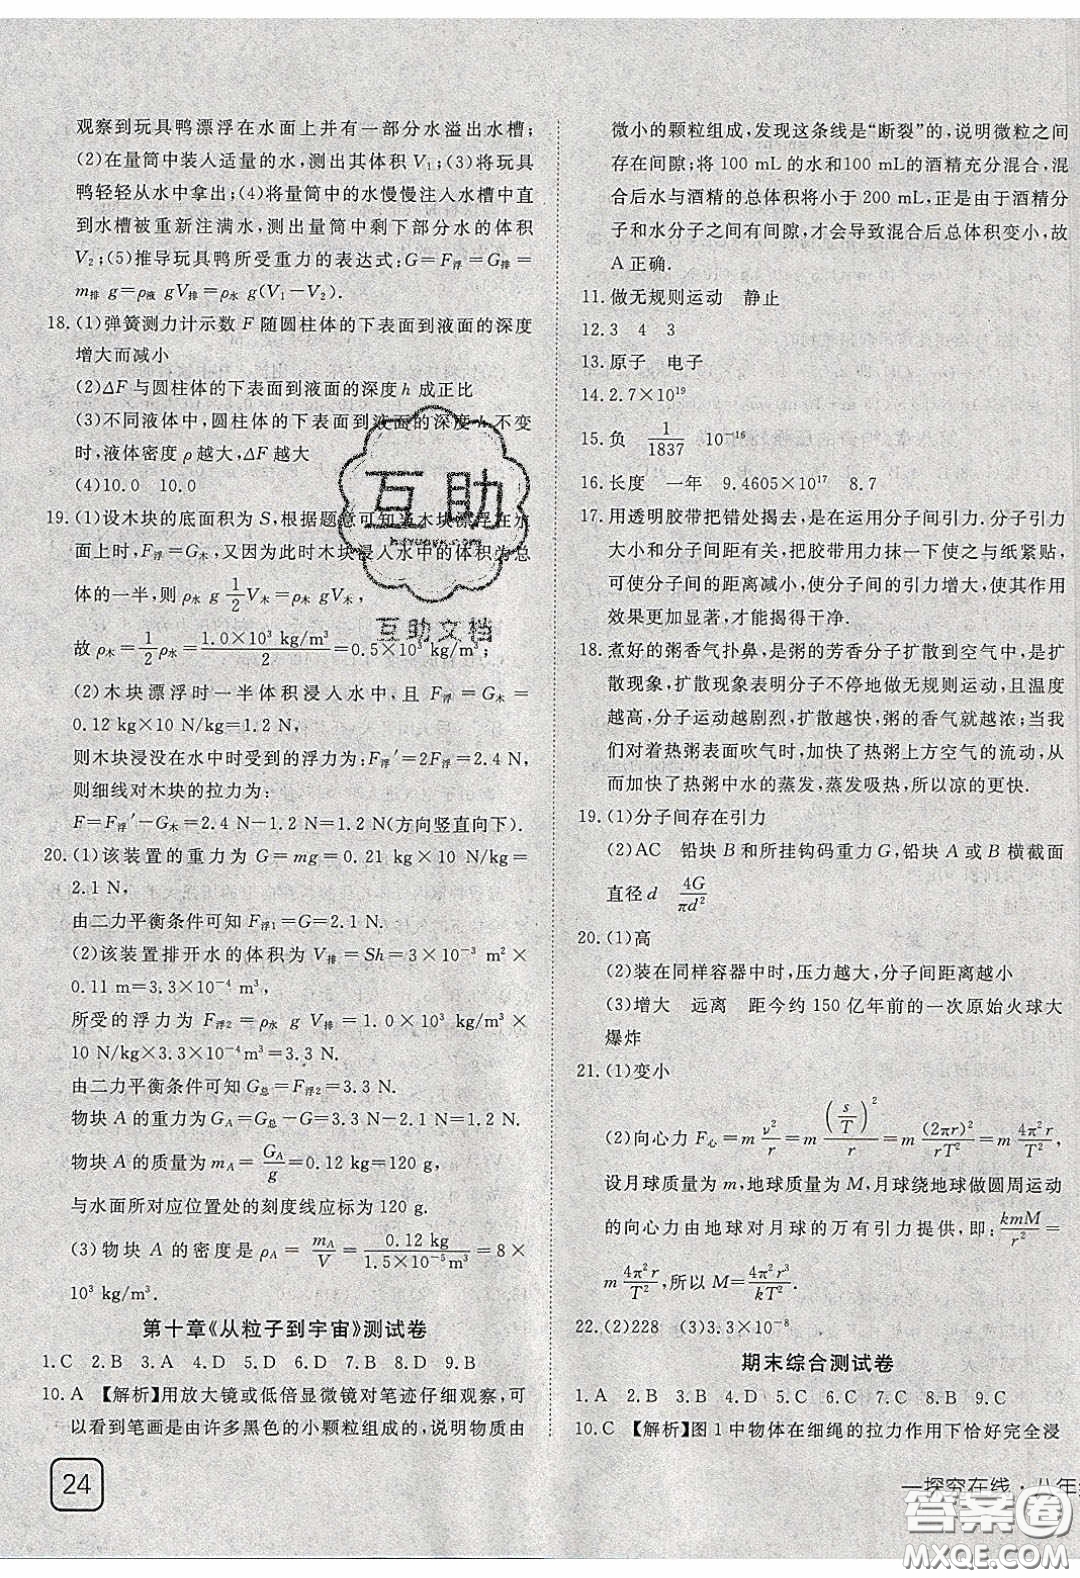 观察到玩具鸭漂浮在水面上并有一部分水溢出水槽;
(2)在量筒中装入适量的水,测出其体积 V₁;(3)将玩具
鸭轻轻从水中拿出;(4)将量筒中的水慢慢注入水槽,
直到水槽被重新注满水,测量筒中剩下部分水的体积
V₂;(5)推导玩具鸭所受重力的表达式:G=F浮=G排=
m排 g=ρ液 gV排=ρ水 g(V₁-V₂).
18.(1)弹簧测力计示数 F 随圆柱体的下表面到液面的深度
增大而减小
(2)ΔF 与圆柱体的下表面到液面的深度 h 成正比
(3)不同液体中,圆柱体的下表面到液面的深度 h 不变
时,液体密度 ρ 越大,ΔF 越大
(4)10.0 10.0
19.(1)设木块的底面积为 S,根据题意可知当木块漂浮在水
面上时,F浮=G木,又因为此时木块浸入水中的体积为总
体的一半,则 ρ水 g 1/2 V木=ρ木 g V木,
故 ρ木=1/2 ρ水=1.0×10³ kg/m³/2=0.5×10³ kg/m³;
(2)木块漂浮时一半体积浸入水中,且 F浮=G木=
0.12 kg×10 N/kg=1.2 N,
则木块浸没在水中时受到的浮力为:F浮′=2F浮=2.4 N,
则细线对木块的拉力为:
F=F浮′-G木=2.4 N-1.2 N=1.2 N(方向竖直向下).
20.(1)该装置的重力为 G=mg=0.21 kg×10 N/kg=
2.1 N,
由二力平衡条件可知 F浮1=G=2.1 N.
(2)该装置排开水的体积为 V排=Sh=3×10⁻³ m²×
0.11 m=3.3×10⁻⁴ m³,
所受的浮力为 F浮2=ρ水 g V排=1.0×10³ kg/m³×10
10 N/kg×3.3×10⁻⁴m³=3.3 N,
由二力平衡条件可知 G总=F浮2=3.3 N.
物块 A 的重力为 G_A=G总-G=3.3 N-2.1 N=1.2 N.
物块 A 的质量为 m_A=G_A/g=0.12 kg=120 g,
与水面所对应位置处的刻度线应标为 120 g.
(3)物块 A 的密度是 ρ_A=m_A/V=0.12 kg/1.5×10⁻⁵m³=8×
10³ kg/m³.
第十章《从粒子到宇宙》测试卷
1.C 2.B 3.A 4.D 5.D 6.D 7.D 8.D 9.B
10.A 【解析】用放大镜或低倍显微镜对笔迹仔细观察,可
以看到笔画是由许多黑色的小颗粒组成的,说明物质由
24
微小的颗粒组成,发现这条线是“断裂”的,说明微粒之间
存在间隙;将 100 mL的水和100 mL的酒精充分混合,混
合后水与酒精的总体积将小于 200 mL,正是由于酒精分
子和水分子之间有间隙,才会导致混合后总体积变小,故
A 正确.
11.做无规则运动 静止
12.3 4 3
13.原子 电子
14.2.7×10¹⁹
15.负 1/1837 10⁻¹⁶
16.长度 一年 9.4605×10¹⁷ 8.7
17.用透明胶带把错处揭去,是在运用分子间引力.分子引力
大小和分子间距有关,把胶带用力抹一下使之与纸紧贴,
可使分子间的距离减小,使分子间的引力增大,使作用
效果更加显著,才能揭得干净.
18.煮好的粥香气扑鼻,是粥的芳香分子扩散到空气中,是扩
散现象,扩散现象表明分子不停地做无规则运动,且温度
越高,分子运动越剧烈,扩散越快,粥的香气就越浓;当我
们对着热粥表面吹气时,加快了热粥上方空气的流动,从
而加快了热粥中水的蒸发,蒸发吸热,所以凉的更快.
19.(1)分子间存在引力
(2)AC 铅块 B 和所挂钩码重力 G,铅块 A 或 B 横截面
直径 d 4G/πd²
20.(1)高
(2)装在同样容器中时,压力越大,分子间距离越小
(3)增大 远离 距今约 150 亿年前的一次原始火球大
爆炸
21.(1)变小
(2)向心力 F心=m v²/r=m (s/T)²/r=m (2πr)²/rT²=m 4π²r/T²,
设月球质量为 m,地球质量为 M,月球绕地球做圆周运动
的向心力由地球对月球的万有引力提供,即:kmM/r²=
m 4π²r/T²,所以 M=4π²r³/kT².
22.(2)228 (3)3.3×10⁻⁸
期末综合测试卷
1.A 2.B 3.B 4.D 5.C 6.C 7.C 8.B 9.C
10.C 【解析】图 1 中物体在细绳的拉力作用下恰好完全浸
一探究在线·八年
互助
互助文档
答案圈
MXQE.COM